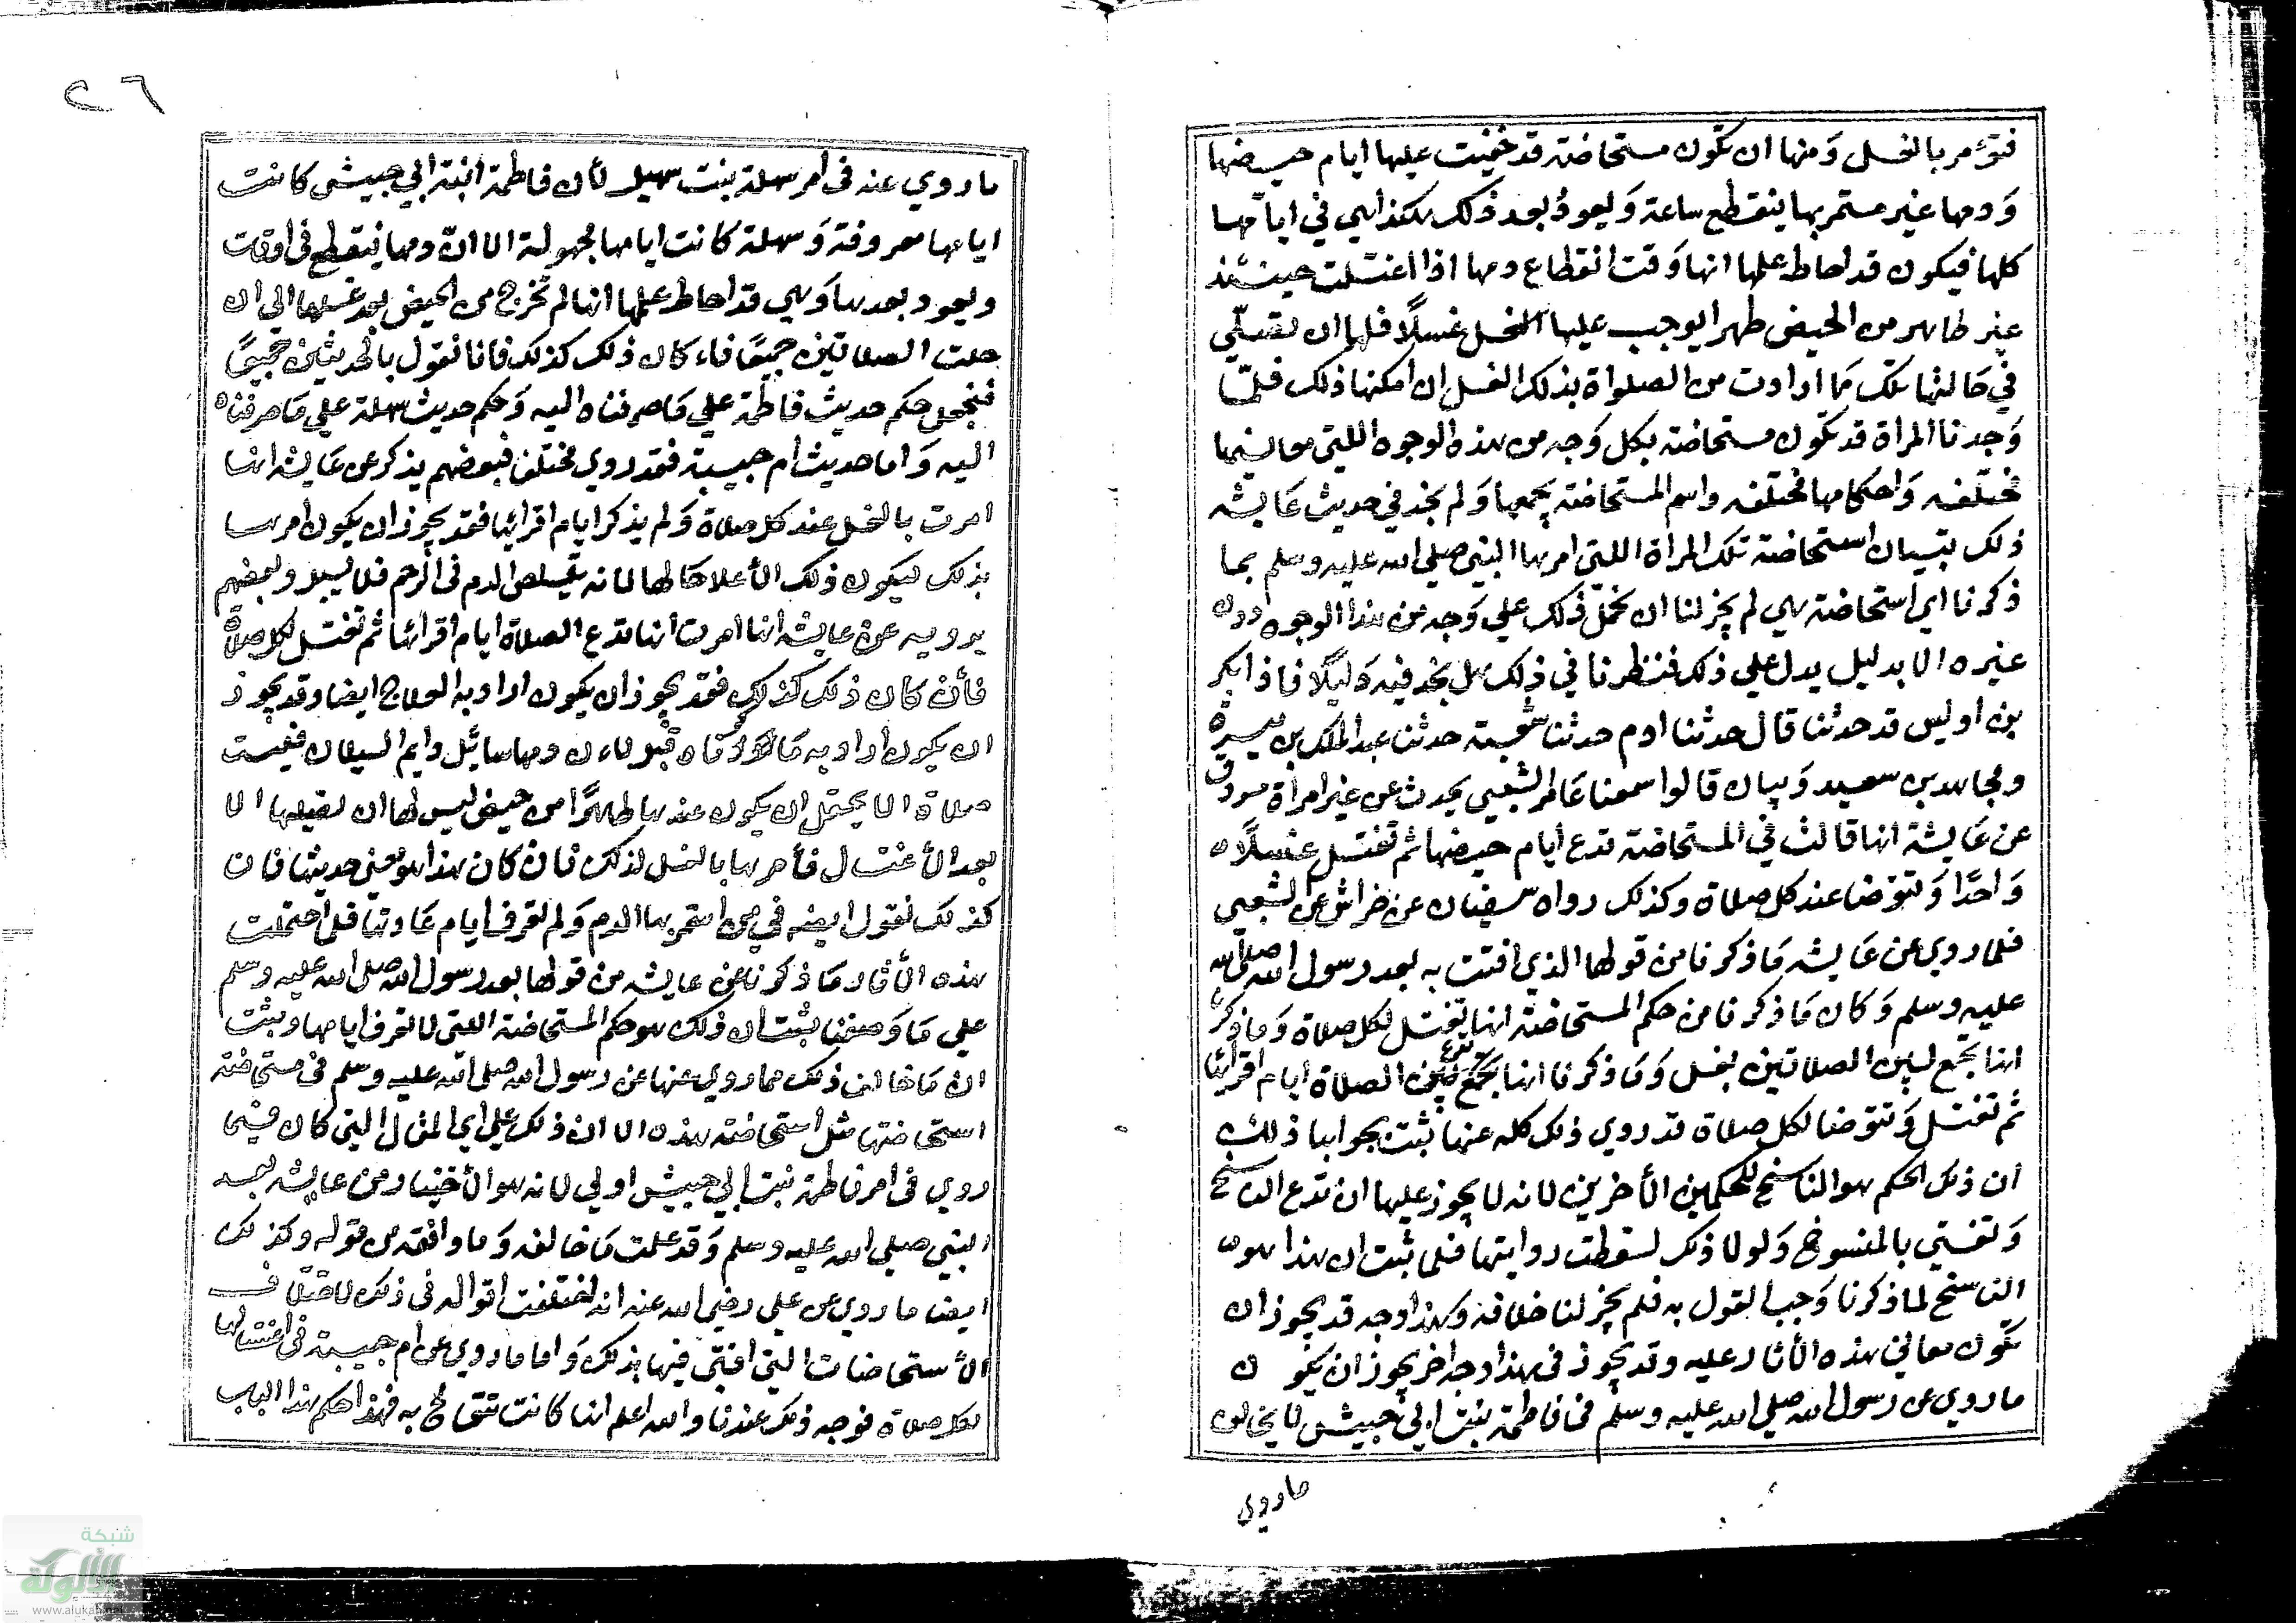 فتؤمر بالغسل وَمنها ان تكون مستحاضة قد خفيت عليها ايام حيضها
وَدمها غير مستمر بها ينقطع ساعة وَيعودُ بعد ذلك هكذا هي في ايامها
كلها فيكون قد احاط علمها انها وَقت انقطاع دمها اذا اغتسلت حينئذ
غير طاهر من الحيض طهرا يوجب عليها الغسل غسلًا فلها ان تصلّي
في حَالتها تلك مَا ارادت من الصلواة بذلك الغسل ان امكنها ذلك فلمّا
وَجدنا المراة قد تكون مستحاضة بكل وَجه من هذه الوجوه اللتي معانيها
مختلفه وَاحكامها مختلفه واسم المستحاضة يجمعها وَلم نجد في حديث عَايشه
ذلك تبيان استحاضة تلك المراة اللتي امرها النبي صلي الله عليه وسلم بما
ذكرنا اي استحاضة هي لم يجز لنا ان نحمل ذلك علي وَجه من هذا الوجوه دون
غيره الا بدليل يدل علي ذلك فنظرنا في ذلك هل نجد فيه دَليلًا فاذا بكر
بن اوليس قد حدثنا قال حدثنا ادم حدثنا شعبة حدثنا عبد الملك بن ميسرة
ومجالد بن سعيد وَبيان قالوا سمعنا عَامر الشعبي يحدث عن غير امرأة مسروق
عن عَايشة انها قالت في المستحاضة تدع أيام حيضها ثم تغتسل غسلًا
وَاحدًا وَتتوضا عند كل صلاة وكذلك رواه سفيان عن فراش عن الشعبي
فلما روي عن عَايشه مَا ذكرنا من قولها الذي افتت به بعد رسول الله صلي الله
عليه وسلم وَكان مَا ذكرنا من حكم المستحاضة انها تغتسل لكل صلاة وَما ذكرنا
انها تجمع لبين الصلاتين بغسل وَمَا ذكرنا انها تدع الصلاة ايام اقرائها
ثم تغتسل وَتتوضا لكل صلاة قد روي ذلك كله عنها ثبت بجوابها ذلك
ان ذلك الحكم هو الناسخ للحكمين الأخرين لانه لا يجوز عليها ان تدع الناسخ
وَتفتي بالمنسوخ وَلولا ذلك لسقطت روايتها فلما ثبت ان هذا هو
الناسخ لما ذكرنا وَجب القول به فلم يجز لنا خلافه وَهذا وجه قد يجوز ان
تكون معاني هذه الأثار عليه وقد يجوز في هذا وجه اخر يجوز ان يكون
ما روي عن رسول الله صلي الله عليه وسلم في فاطمة بنت ابي حبيش لا يخالف
ما روي
٢٦
ما روي عنه في امر سهلة بنت سهيل لأن فاطمة ابنة ابي حبيش كانت
ايامها معروفة وَسهلة كانت ايامها مجهولة الا انّ دمها ينقطع في اوقات
ويعود بعدها وَهي قد احاط علمها انها لم تخرج من الحيض بعد غسلها الي ان
صلت الصلاتين جميعًا فاء كان ذلك كذلك فانا نقول بالحديثين جميعًا
فنجعل حكم حديث فاطمة علي مَا صرفناه اليه وَحكم حديث سهلة علي مَا صرفناه
اليه وَاما حديث ام حبيبة فقد روي مختلف فبعضهم يذكر عن عَايشه انها
امرت بالغسل عند كل صلاة وَلم يذكر ايام اقرائها فقد يجوز ان يكون امرها
بذلك ليكون ذلك الأعلاحَا لها لانه يقلص الدم في الرحم فلا يسيل وبعضهم
يرويه عن عايشه انها امرت انها تدع الصلاة ايام اقرائها ثم تغتسل لكل صلاة
فأن كان ذلك كذلك فقد يجوز ان يكون اراد به العلاج ايضا وقد يجوز
ان يكون اراد به مَا ذكرناه قبل لاءن دمها سائيل دايم السيلان فليست
صلاة الا يحتمل ان يكون عندها طهرًا من حيض ليس لها ان تصليها الا
بعد الأغتسال فأمرها بالغسل لذلك فان كان هذا هو معني حديثها فان
كذلك نقول ايضه في من استمر بها الدم وَلم تعرف ايام عَادتها فلما احتملت
هذه الأثار مَا ذكرنا عن عايشه من قولها بعد رسول الله صلي الله عليه وسلم
علي مَا وَصفنا ثبت ان ذلك هو حكم المستحاضة اللتي لا تعرف ايامها وثبت
ان مَا خالف ذلك مما روي عنها عن رسول الله صلي الله عليه وسلم في مستحاضة
استحاضتها مثل استحاضة هذه الا ان ذلك علي اي المعال التي كان فيما
روي في امر فاطمة بنت ابي حبيش اولي لانه هو الأختيار من عايشه بعد
النبي صلي الله عليه وسلم وَقد علمت مَا خالفه وَما وافقه من قوله وكذلك
ايضا ما روي عن علي رضي الله عنه انه اختلفت اقواله في ذلك لاختلاف
الأستحاضات التي افتي فيها بذلك وَاما ما روي عن ام حبيبة في اغتسالها
لكل صلاة فوجه ذلك عندنا والله اعلم انها كانت تتعالج به فهذا حكم هذا الباب
شبكة
الألوكة
www.alukah.net